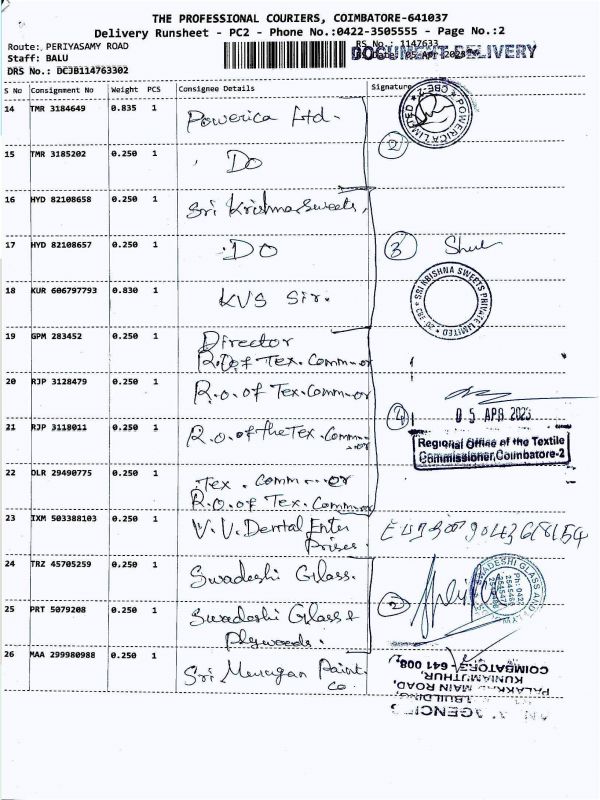 THE PROFESSIONAL COURIERS, COIMBATORE-641037
Delivery Runsheet - PC2 - Phone No.:0422-3505555 - Page No.:2
Route: PERIYASAMY ROAD
RS No.: 1147633
DOCUMENT DELIVERY
Staff: BALU
05 Apr 2023
DRS No.: DCJB114763302
S No Consignment No Weight PCS Consignee Details Signature
14 TMR 3184649 0.835 1 Powerica Ltd.
POWERICA LIMITED CBE-2
2
15 TMR 3185202 0.250 1 Do
16 HYD 82108658 0.250 1 Sri Krishna Sweets,
17 HYD 82108657 0.250 1 Do
3
18 KUR 606797793 0.830 1 KVS Sir.
SRI KRISHNA SWEETS PRIVATE LIMITED
19 GPM 283452 0.250 1 Director
R.O of Tex. Comm-or
20 RJP 3128479 0.250 1 R.O. of Tex. Comm-or
05 APR 2023
21 RJP 3118011 0.250 1 R.O. of the Tex. Comm-or
4
Regional Office of the Textile
Commissioner, Coimbatore-2
22 DLR 29490775 0.250 1 Tex. Comm--or
R.O. of Tex. Comm-or
23 IXM 503388103 0.250 1 V.V. Dental Enter
Prises.
24 TRZ 45705259 0.250 1 Swadeshi Glass.
2
SWADESHI GLASS AND PLY
25 PRT 5079208 0.250 1 Swadeshi Glass &
Plywoods.
26 MAA 299980988 0.250 1 Sri Murugan Paint
Co
COIMBATORE - 641 008
KUNIAMUTHUR,
PALAKKAD MAIN ROAD,
BUILDING,
AGENCIES